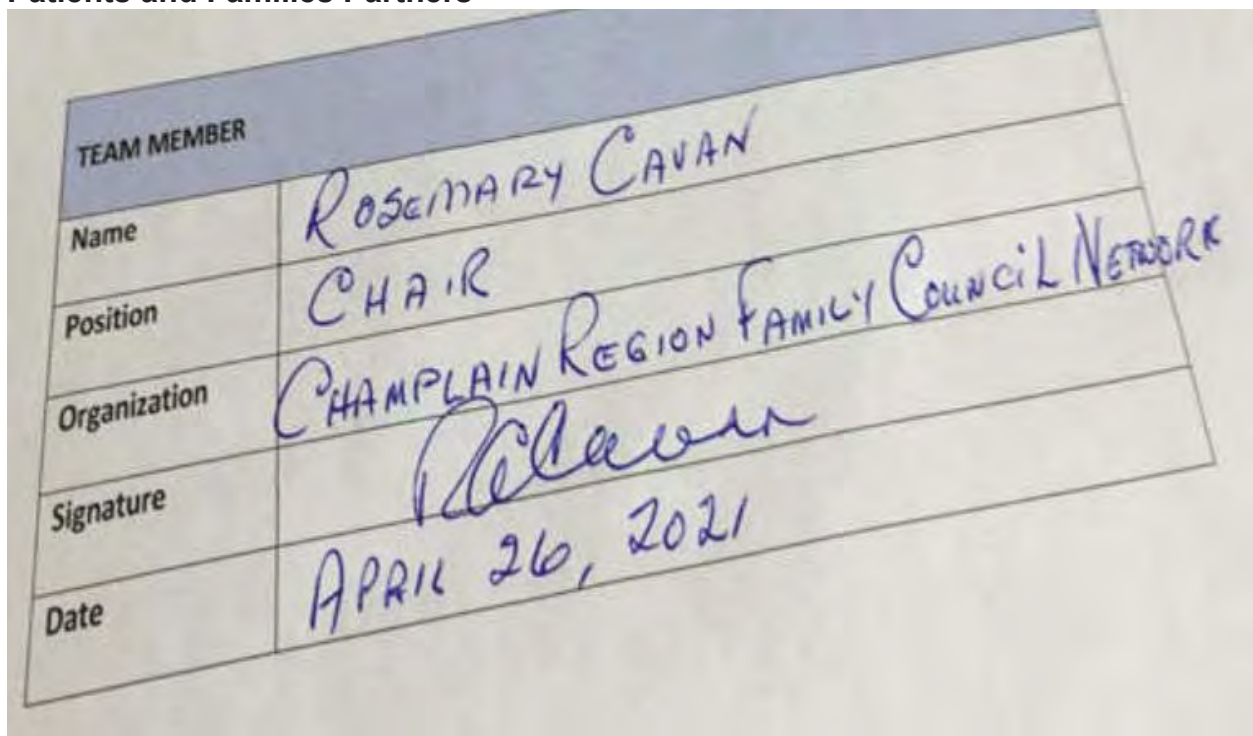 Patients and Families Partners
TEAM MEMBER
Name ROSEMARY CAVAN
Position CHAIR
Organization CHAMPLAIN REGION FAMILY COUNCIL NETWORK
Signature RCavan
Date APRIL 26, 2021